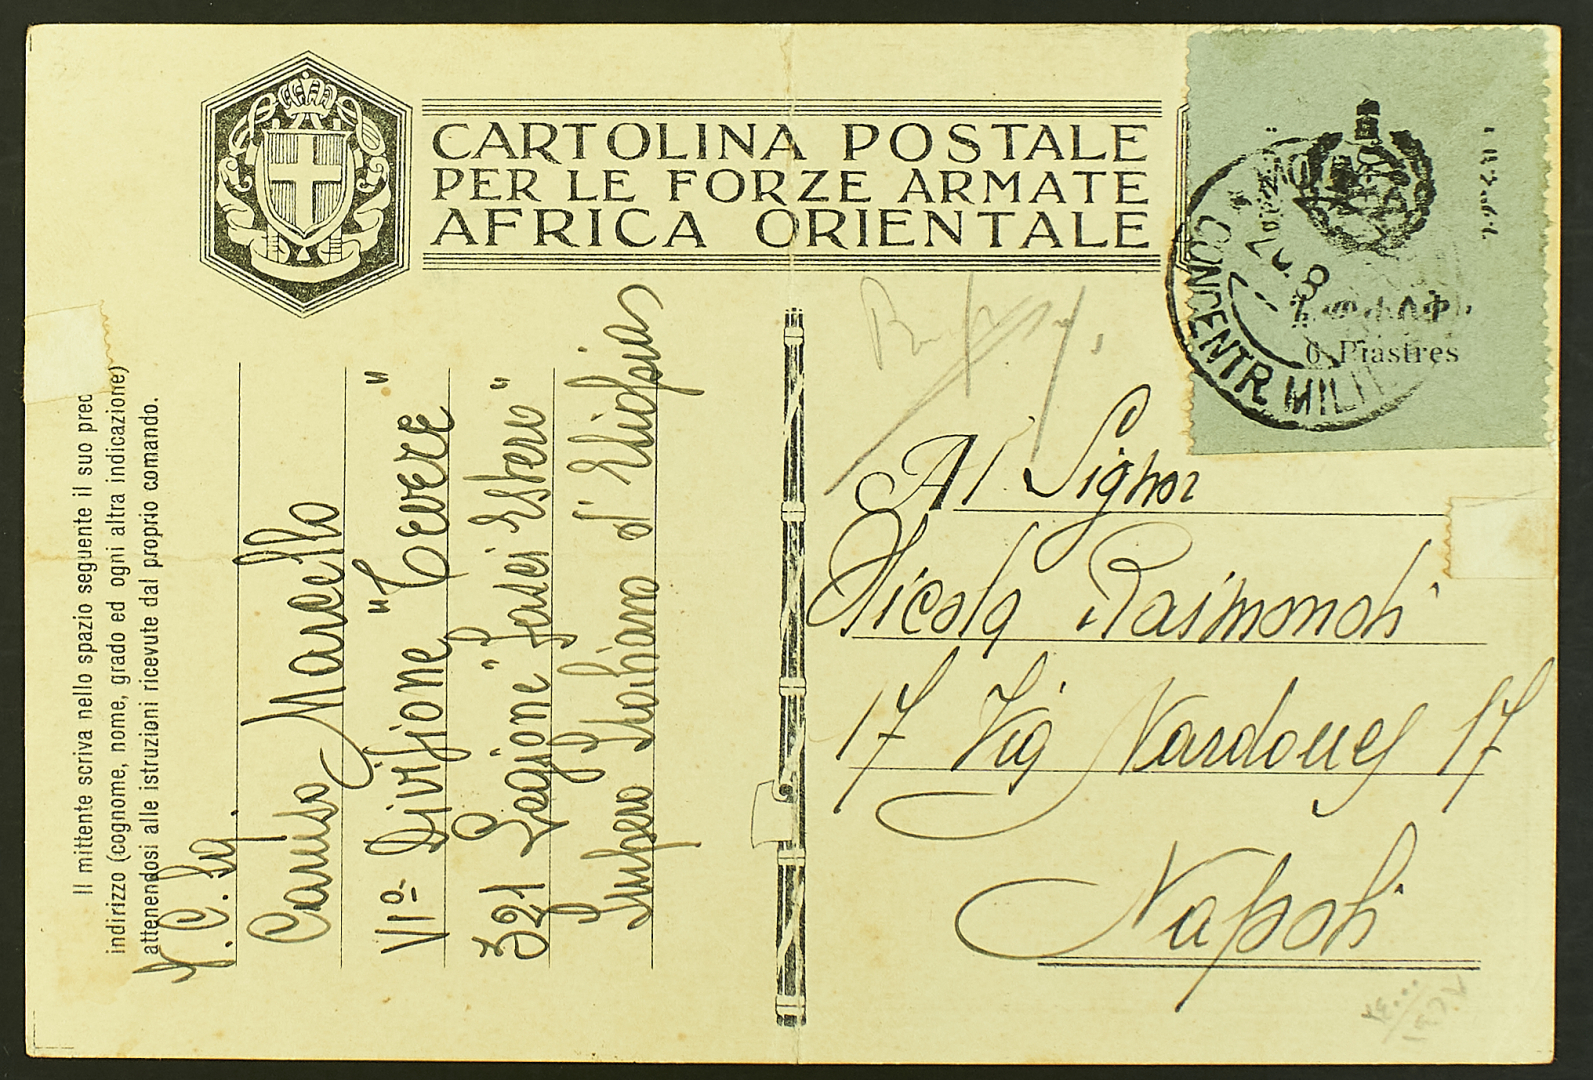 CARTOLINA POSTALE
PER LE FORZE ARMATE
AFRICA ORIENTALE
Il mittente scriva nello spazio seguente il suo prec
indirizzo (cognome, nome, grado ed ogni altra indicazione)
attenendosi alle istruzioni ricevute dal proprio comando.
Caruso Marcello
VIª Divisione "Tevere"
321 Legione "Fasci Estero"
Impero Italiano d'Etiopia
CONCENTR. MILIT
6 Piastres
Al Signor
Nicola Raimondi
17 Via Nardones 17
Napoli